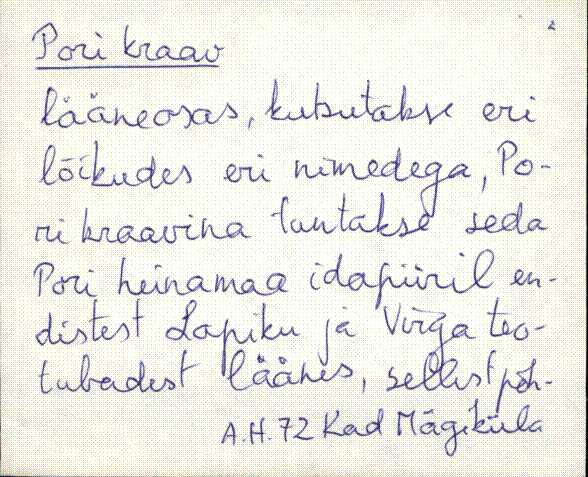 2
Pori kraav
lääneosas, kutsutakse eri
lõikudes eri nimedega, Po-
ri kraavina tuntakse seda
Pori heinamaa idapiiril en-
distest Lapiku ja Virga teo-
tubadest läänes, sellest põh-
A.H. 72 Kad Mägiküla